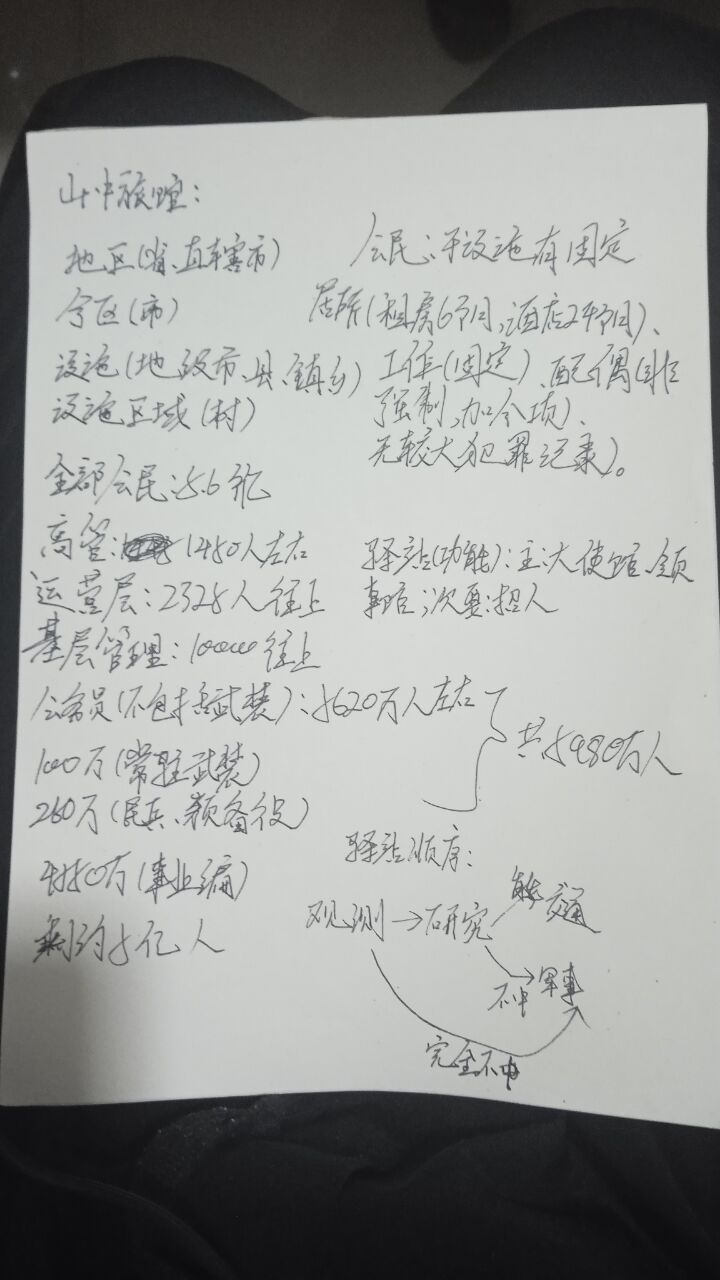 山中旅馆:
地区(省、直辖市)
分区(市)
设施(地级市、县、镇乡)
设施区域(村)
全部公民:5.6亿
高管: 1480人左右
运营层:2328人往上
基层管理:100000往上
公务员(不包括武装):5620万人左右
100万(常驻武装)
260万(民兵、预备役)
共5980万人
4850万(事业编)
剩约5亿人
公民:于设施有固定
居所(租房6个月,酒店24个月)、
工作(固定)、配偶(非
强制,加分项)、
无较大犯罪记录)。
驿站(功能):主:大使馆、领
事馆;次要:招人
驿站顺序:
观测→研究
能 交通
不中 军事
完全不中